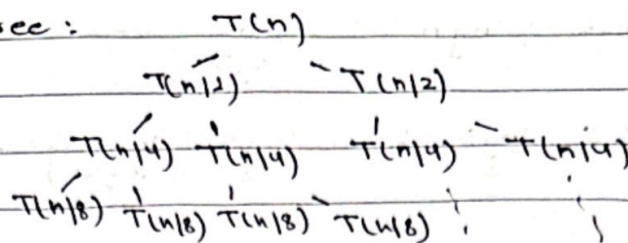 ee : T(n)
T(n/2) T(n/2)
T(n/4) T(n/4) T(n/4) T(n/4)
T(n/8) T(n/8) T(n/8) T(n/8)